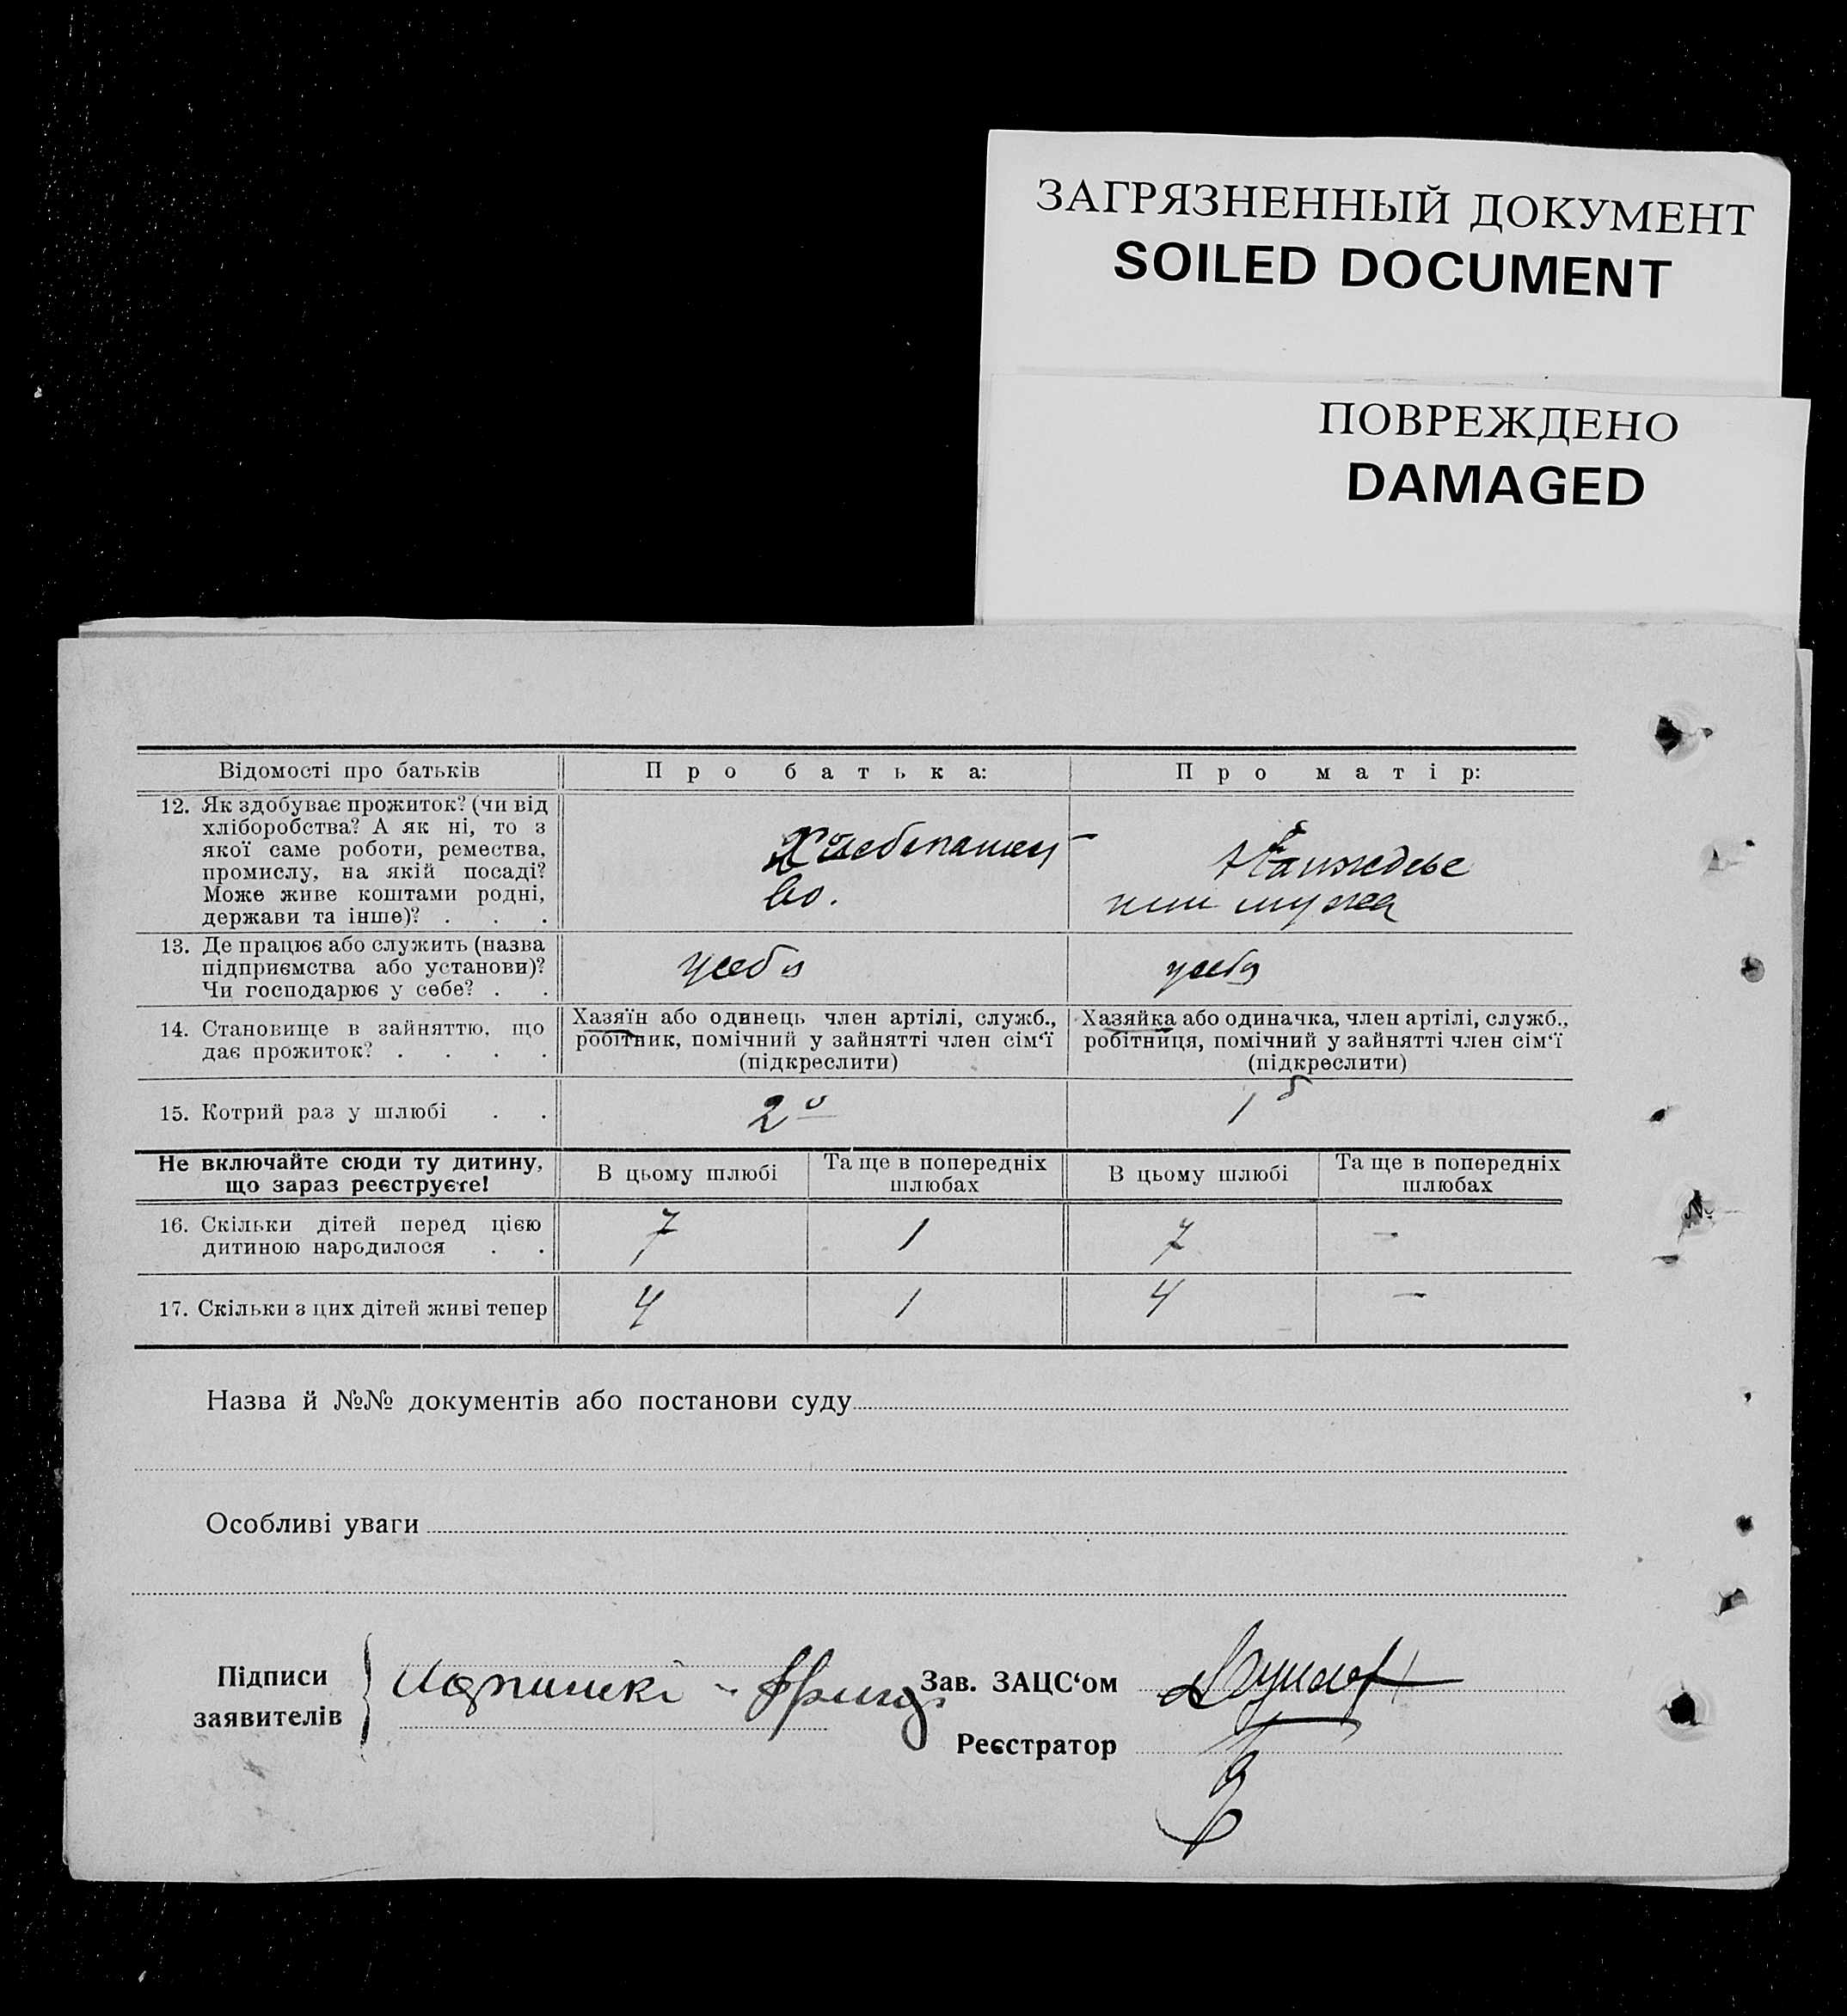 ЗАГРЯЗНЕННЫЙ ДОКУМЕНТ
SOILED DOCUMENT
ПОВРЕЖДЕНО
DAMAGED
Відомості про батьків
Про батька:
Про матір:
12. Як здобуває прожиток? (чи від
хліборобства? А як ні, то з
якої саме роботи, ремества,
промислу, на якій посаді?
Може живе коштами родні,
держави та інше)? . . .
во.
мужа
13. Де працює або служить (назва
підприємства або установи)?
Чи господарює у себе? . .
у себя
у себя
14. Становище в зайняттю, що
дає прожиток? . . . .
Хазяїн або одинець член артілі, служб.,
робітник, помічний у зайнятті член сім‘ї
(підкреслити)
Хазяйка або одиначка, член артілі, служб.,
робітниця, помічний у зайнятті член сім‘ї
(підкреслити)
15. Котрий раз у шлюбі . .
2й
1й
Не включайте сюди ту дитину,
що зараз реєструєте!
В цьому шлюбі
Та ще в попередніх
шлюбах
В цьому шлюбі
Та ще в попередніх
шлюбах
16. Скільки дітей перед цією
дитиною народилося . .
7
1
7
—
17. Скільки з цих дітей живі тепер
4
1
4
—
Назва й №№ документів або постанови суду
Особливі уваги
Підписи
заявителів
Зав. ЗАЦС‘ом
Реєстратор